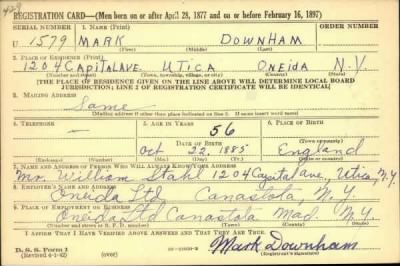 429
REGISTRATION CARD—(Men born on or after April 28, 1877 and on or before February 16, 1897)
SERIAL NUMBER 1. NAME (Print)
U 1579 MARK DOWNHAM
(First) (Middle) (Last)
2. PLACE OF RESIDENCE (Print)
1204 CAPITAL AVE. UTICA ONEIDA N.Y.
(Number and street) (Town, township, village, or city) (County) (State)
[THE PLACE OF RESIDENCE GIVEN ON THE LINE ABOVE WILL DETERMINE LOCAL BOARD
JURISDICTION; LINE 2 OF REGISTRATION CERTIFICATE WILL BE IDENTICAL]
3. MAILING ADDRESS
Same
[Mailing address if other than place indicated on line 2. If same insert word same]
4. TELEPHONE 5. AGE IN YEARS 6. PLACE OF BIRTH
— 56
DATE OF BIRTH England
Oct 22. 1885
(Exchange) (Number) (Mo.) (Day) (Yr.) (State or country)
7. NAME AND ADDRESS OF PERSON WHO WILL ALWAYS KNOW YOUR ADDRESS
Mr. William Stahl 1204 Capital ave., Utica, N.Y.
8. EMPLOYER'S NAME AND ADDRESS
Oneida Ltd Canastota, N.Y.
9. PLACE OF EMPLOYMENT OR BUSINESS
Oneida Ltd Canastota Mad. N.Y.
(Number and street or R. F. D. number) (Town) (County) (State)
I AFFIRM THAT I HAVE VERIFIED ABOVE ANSWERS AND THAT THEY ARE TRUE.
D. S. S. Form 1
(Revised 4-1-42) (over) Mark Downham
(Registrant's signature)